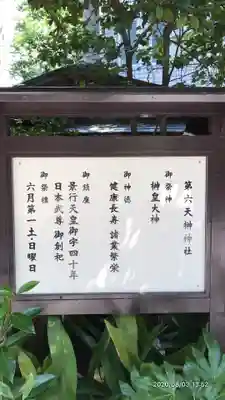 第六天榊神社
御祭神
榊皇大神
御神徳
健康長寿 諸業繁栄
御鎮座
景行天皇御宇四十年
日本武尊 御創祀
御祭禮
六月第一土日曜日
2020/08/03 13:52